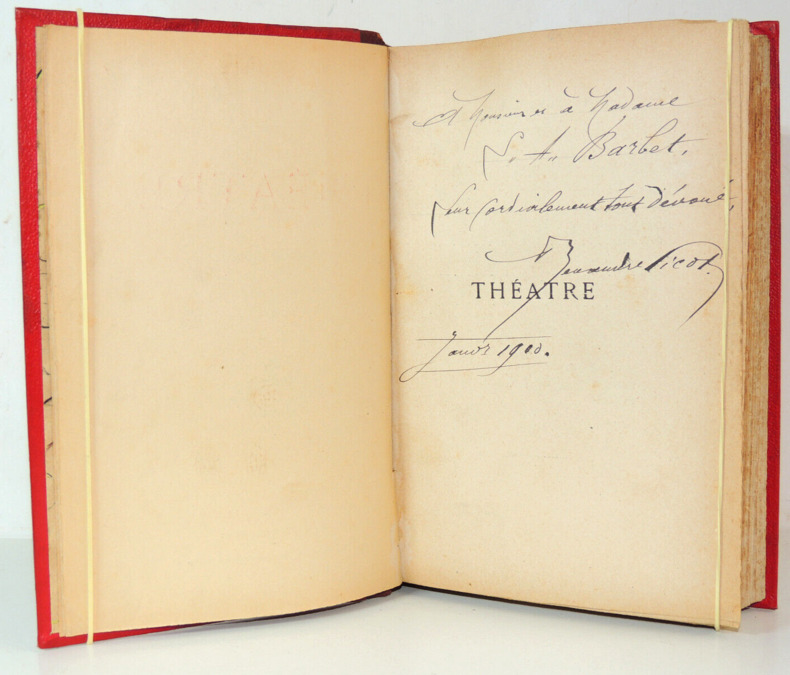 A Monsieur et à Madame
L. A. Barbet,
Leur cordialement tout dévoué,
Picot.
THÉATRE
Janv 1900.